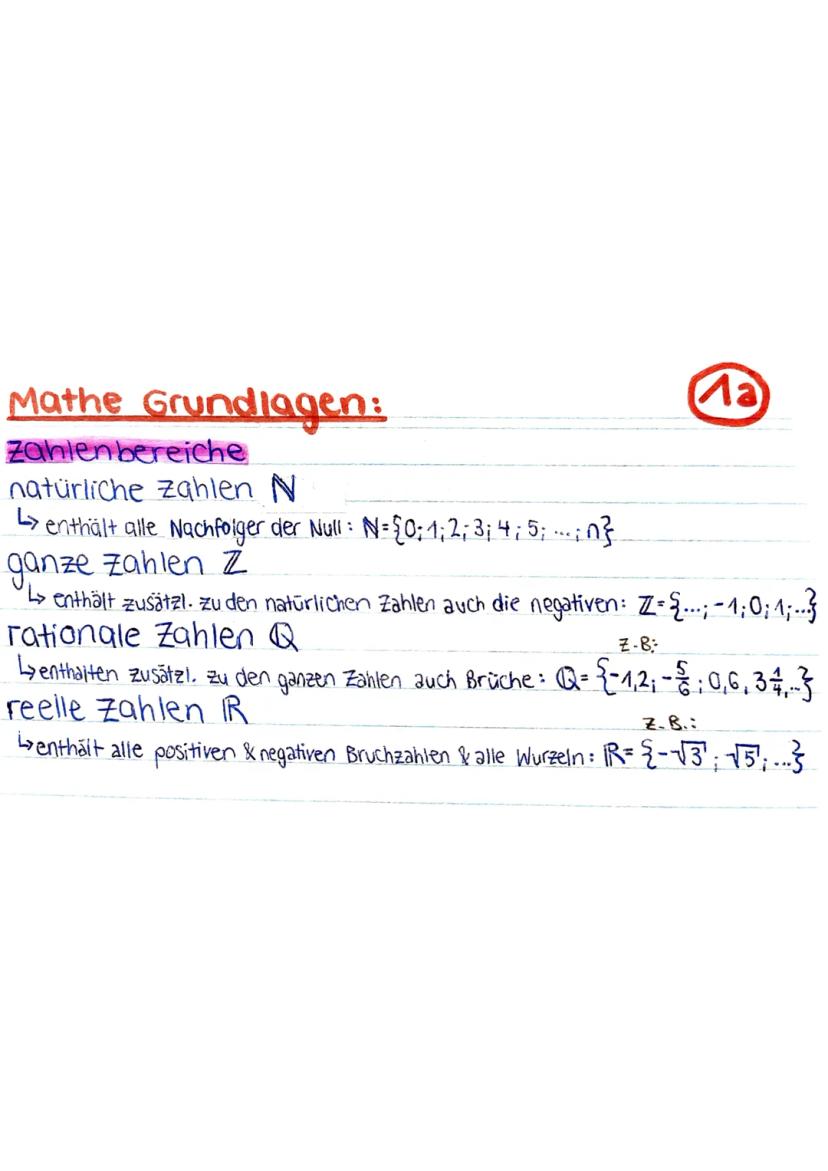 Mathe Grundlagen:
1a
Zahlenbereiche
natürliche Zahlen ℕ
↳ enthält alle Nachfolger der Null: ℕ={0; 1; 2; 3; 4; 5; ...; n}
ganze Zahlen ℤ
↳ enthält zusätzl. zu den natürlichen Zahlen auch die negativen: ℤ={...; -1; 0; 1; ...}
rationale Zahlen ℚ
z.B:
↳ enthalten zusätzl. zu den ganzen Zahlen auch Brüche: ℚ= {-1,2; -5/6; 0,6, 3 1/4, ...}
reelle Zahlen ℝ
z.B.:
↳ enthält alle positiven & negativen Bruchzahlen & alle Wurzeln: ℝ= {-√3; √5; ...}